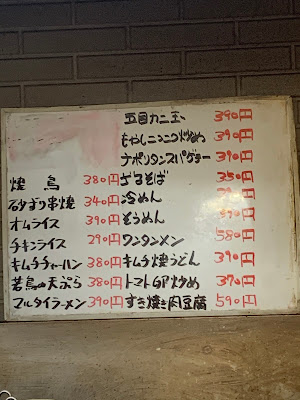 五目カニ玉 390円
もやしニンニク炒め 390円
ナポリタンスパゲティー 390円
焼鳥 380円 ざるそば 350円
砂ずり串焼 340円 冷めん
オムライス 390円 そうめん
チキンライス 290円 ワンタンメン 580円
キムチチャーハン 380円 キムチ焼うどん 390円
若鳥の天ぷら 380円 トマト卵炒め 370円
マルタイラーメン 390円 すき焼き肉豆腐 590円